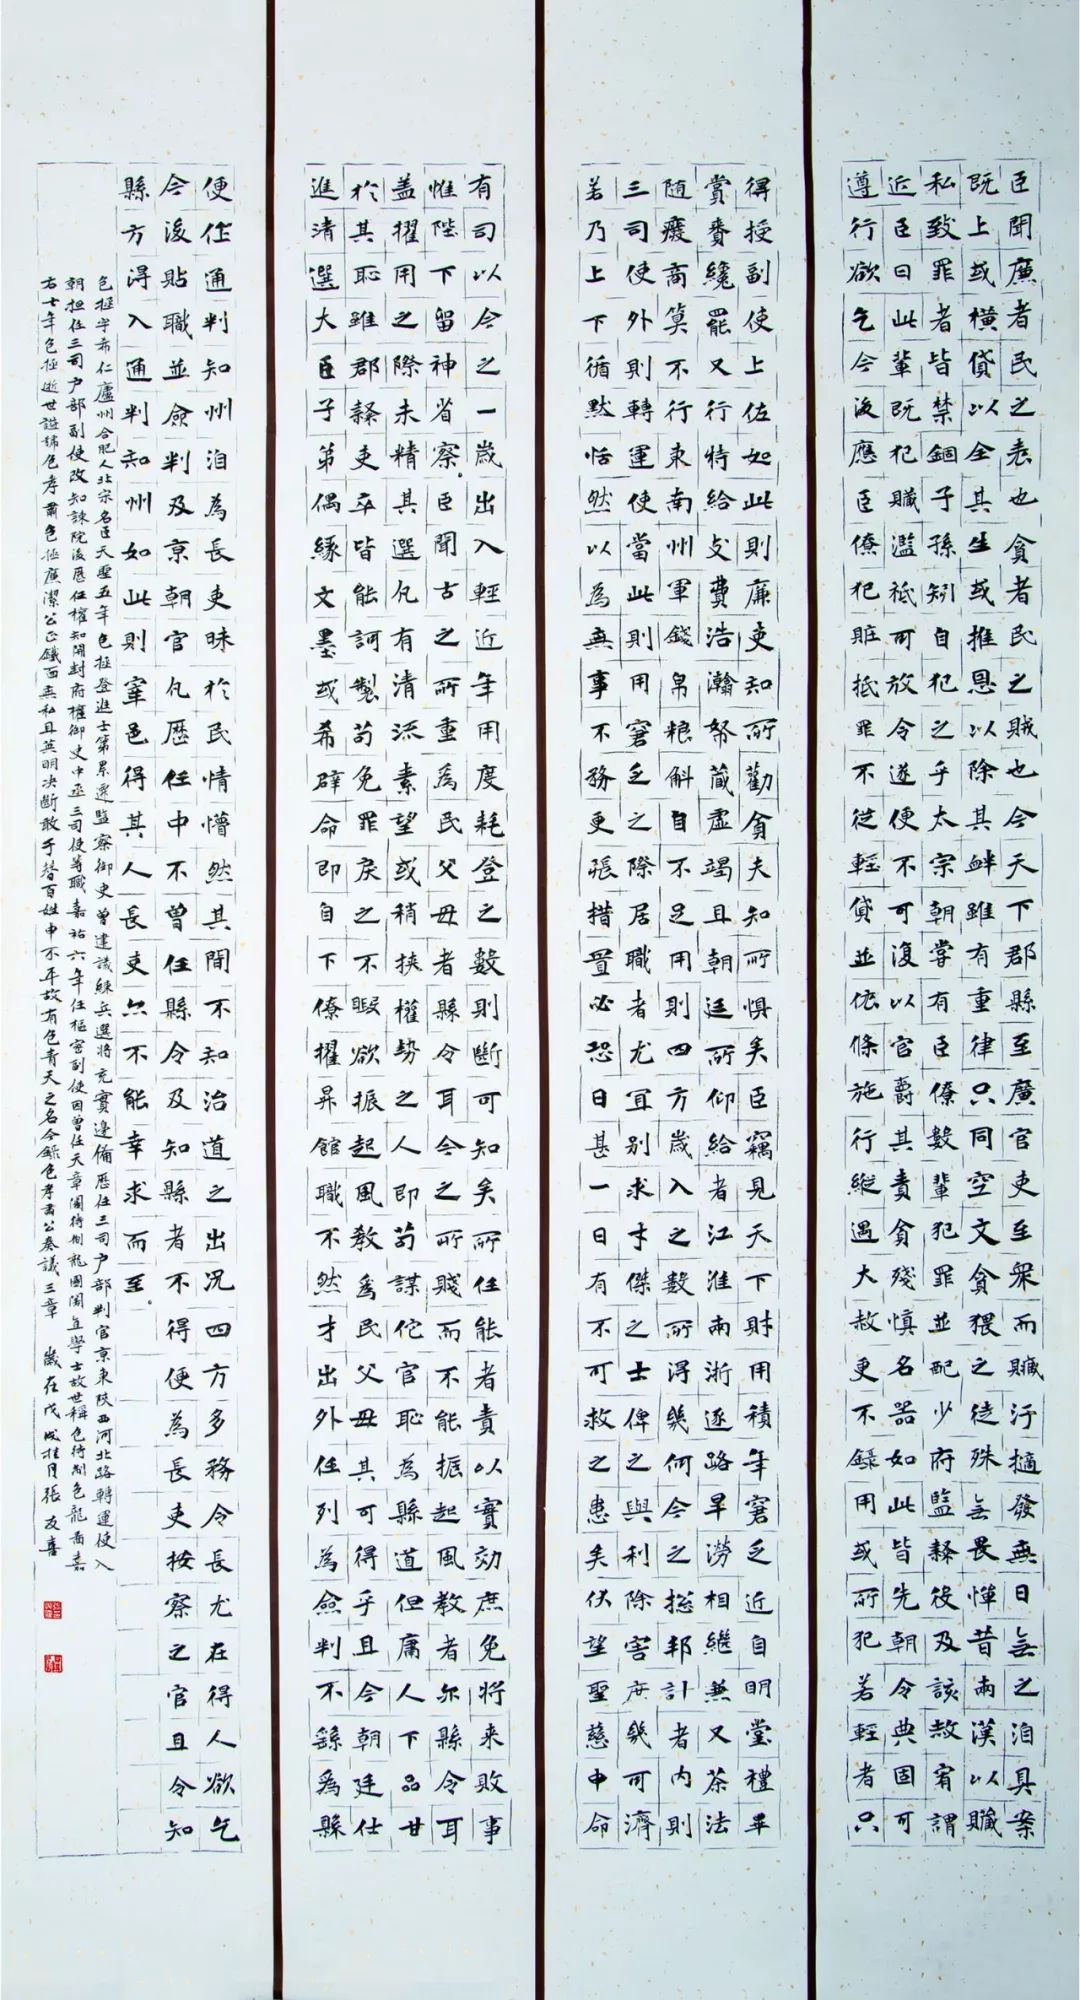 臣聞廉者民之表也貪者民之賊也今天下郡縣至廣官吏至衆而贓汙擿發無日無之洎具案
既上或橫貸以全其生或推恩以除其衅雖有重律只同空文貪猥之徒殊無畏憚昔兩漢以贓
私致罪者皆禁錮子孫矧自犯之乎太宗朝嘗有臣僚數輩犯罪並配少府監隸役及該赦宥謂
近臣曰此輩既犯贓濫祗可放令遂便不可復以官爵其責貪殘慎名器如此皆先朝令典固可
遵行欲乞今後應臣僚犯贓抵罪不從輕貸並依條施行縱遇大赦更不錄用或所犯若輕者只
得授副使上佐如此則廉吏知所勸貪夫知所惧矣臣竊見天下財用積年窘乏近自明堂禮畢
賞賚纔罷又行特給支費浩瀚帑藏虛竭且朝廷所仰給者江淮兩浙逐路旱澇相繼兼又茶法
隨癈商筭不行東南州軍錢帛粮斛自不足用則四方歲入之數所得幾何今之捴邦計者內則
三司使外則轉運使當此則用窘乏之際居職者尤宜别求才傑之士俾之與利除害庶幾可濟
若乃上下循默恬然以為無事不務更張措置必恐日甚一日有不可救之患矣伏望聖慈申命
有司以今之一歲出入輕近年用度耗登之數則斷可知矣所任能者責以實効庶免將来敗事
惟陛下留神省察臣聞古之所重為民父毋者縣令耳今之所賤而不能振起風教者尔縣令耳
盖擢用之際未精其選凡有清流素望或稍挾權勢之人即苟謀佗官恥為縣道但庸人下品甘
於其恥雖郡隸吏卒皆能訶製苟免罪戾之不暇欲振起風教為民父毋其可得乎且今朝廷仕
進清選大臣子弟偶緣文墨或希辟命即自下僚擢昇館職不然才出外任列為僉判不繇為縣
便作通判知州洎為長吏昧於民情懵然其間不知治道之出况四方多務令長尤在得人欲乞
今後貼職並僉判及京朝官凡歷任中不曾任縣令及知縣者不得便為長吏按察之官且令知
縣方得入通判知州如此則窜邑得其人長吏亦不能幸求而至
包拯字希仁廬州合肥人北宋名臣天聖五年包拯登進士第累遷監察御史曾建議練兵選將充實邊備歷任三司户部判官京東陝西河北路轉運使入
朝担任三司户部副使改知諫院後歷任權知開封府權御史中丞三司使等職嘉祐六年任樞密副使因曾任天章閣待制龍圖閣直學士故世稱包待制包龍圖嘉
右士年包拯逝世諡號包孝肅包拯廉潔公正鐵面無私且英明决斷敢于替百姓申不平故有包青天之名今錄包孝肅公奏議三章 歲在戊戌桂月張友喜